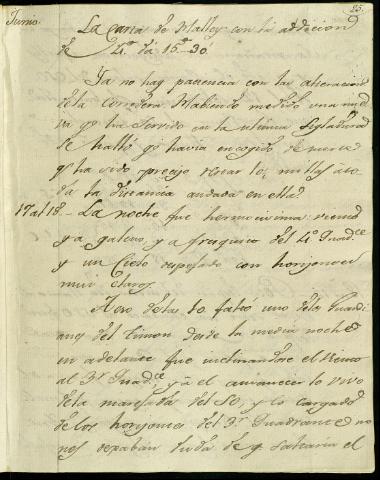 25.
Junio.
La Carta de Malley con la addicion
de 4.º da 15.º 30'
Ya no hay paciencia con las alteraciones
dela Corredera. Habiendo medido una nueva
q.e ha servido en la ultima
se halló q.e havia encogido de
q.e ha sido preciso restar 10 millas à to
da la distancia andada en ella.
17 al 18. - La noche fue hermosisima viento
ya galeno, ya fresquito del 4.º Quad.te
y un Cielo despejado con horizontes
muy claros.
A eso delas 10 faltó uno delos Guardi
anes del Timon desde la media noche
en adelante fue inclinandose el viento
al 3.r Quad.te y á el amanecer lo vivo
dela marejada del SO, y lo cargado
de los horizontes del 3.r Quadrante no
nos dexaban duda de q.e saltaria el